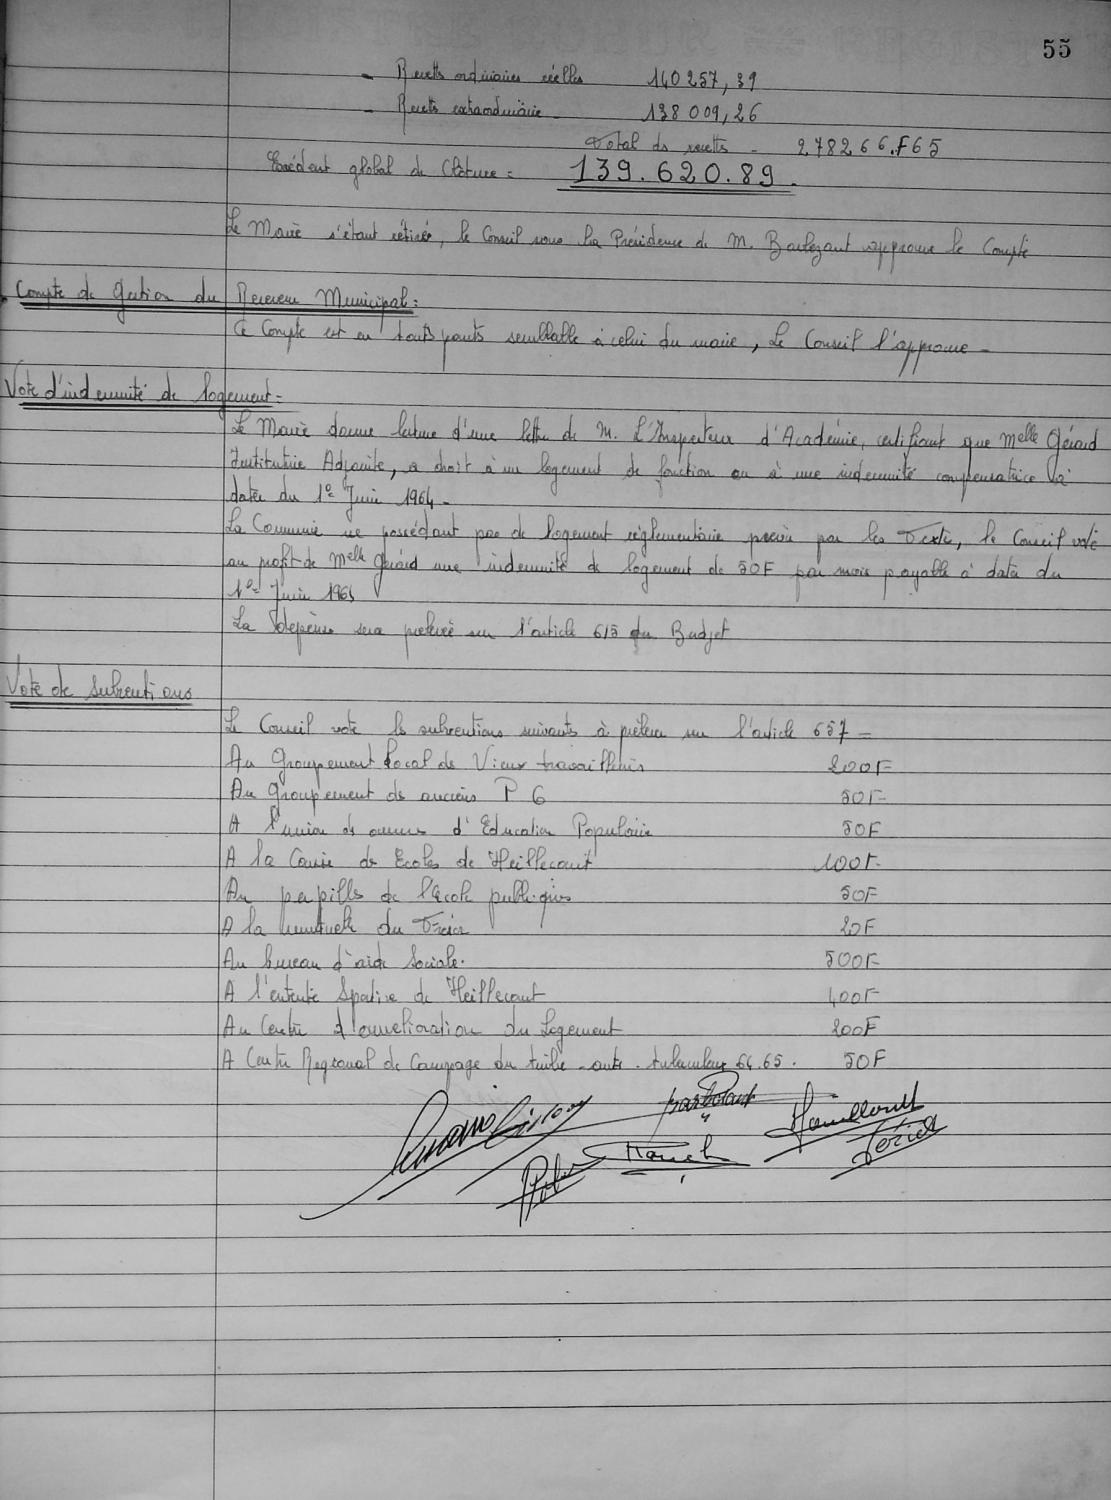 55
- Recetts ordinaires réelles 140 257,39
- Recetts extraordinaire 138 009,26
Total ds recetts - 278266.F65
Excédent global de Clôture = 139.620.89.
Le Maire s'étant retirée, le Conseil sous la Présidence de M. approuve le Compte
Compte de gestion du Receveur Municipal :
Ce Compte est en touts points semblable à celui du maire, Le Conseil l'approuve -
Vote d'indemnité de logement =
Le Maire donne lecture d'une lettre de M. L'Inspecteur d'Académie, certifiant que Melle Gérard
Institutrice Adjointe, a droit à un logement de fonction ou à une indemnité compensatrice à
dater du 1er Juin 1964 -
La Commune ne possédant pas de logement réglementaire prévu par les Texte, le Conseil vote
au profit de Melle Gérard une indemnité de logement de 50F par mois payable à dater du
1er Juin 1964
La dépense sera prélevée sur l'article 615 du Budget
Vote de Subventions
Le Conseil vote ls subventions suivants à prélever sur l'article 657 =
Au Groupement local de Vieux travailleurs 200F
Au Groupement ds anciens P G 50F
A l'union ds œuvres d'Education Populaire 50F
A la Caisse ds Ecoles de Heillecourt 100F
Au pupills de l'école publiques 50F
A la du 20F
Au bureau d'aide Sociale. 500F
A l'entente Spotive de Heillecourt 400F
Au Centre d'amelioration du Logement 200F
A Centre Regional de Campage du timbre - anti - tuberculeux 64.65. 50F